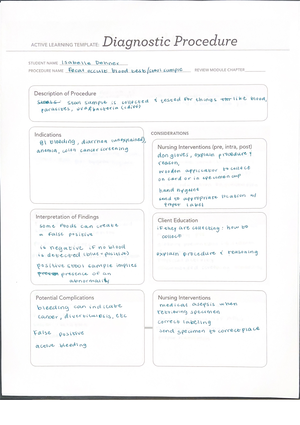 ACTIVE LEARNING TEMPLATE: Diagnostic Procedure
STUDENT NAME Isabella
PROCEDURE NAME Fecal occult blood test/stool sample REVIEW MODULE CHAPTER
Description of Procedure
stool sample is collected & tested for things like blood,
parasites, ova & bacteria (cdiff)
Indications
GI bleeding, diarrhea (unexplained),
anemia, colon cancer screening
CONSIDERATIONS
Nursing Interventions (pre, intra, post)
don gloves, explain procedure &
reason,
wooden applicator to collect
on card or in specimen cup
hand hygiene
send to appropriate location w/
proper labels
Interpretation of Findings
some foods can create
a false positive
is negative if no blood
is detected
positive stool sample implies
presence of an
abnormality
Client Education
if they are collecting: how to
collect
explain procedure & reasoning
Potential Complications
bleeding can indicate
cancer, diverticulosis, etc
False positive
active bleeding
Nursing Interventions
medical asepsis when
retrieving specimen
correct labeling
send specimen to correct place